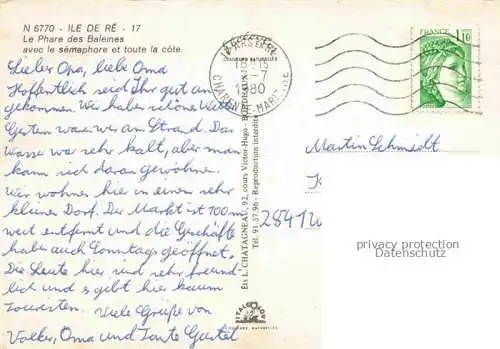 N 6770 - ILE DE RÉ - 17
Le Phare des Baleines
avec le sémaphore et toute la côte.
Lieber Opa, liebe Oma
Hoffentlich seid Ihr gut an
gekommen. Wir haben schönes Wetter
Gestern waren wir am Strand. Das
Wasser war sehr kalt, aber man
kann sich daran gewöhnen.
Wir wohnen hier in einem sehr
kleinen Dorf. Der Markt ist 100 m
weit entfernt und die Geschäfte
haben auch Sonntags geöffnet.
Die Leute hier sind sehr freund-
lich und s gebt hier kaum
Touristen. Viele Grüße von
Volker, Oma und Tante Gustel
Ets L. CHATAGNEAU, 92, cours Victor-Hugo - BORDEAUX
Tél. 91-57-96 - Reproduction interdite
COULEURS NATURELLES
18H15
-7
1980
CHARENTE-MARITIME
FRANCE
1,10
Martin Schmidt
2841
privacy protection
Datenschutz
ITALCOLOR
COULEURS NATURELLES